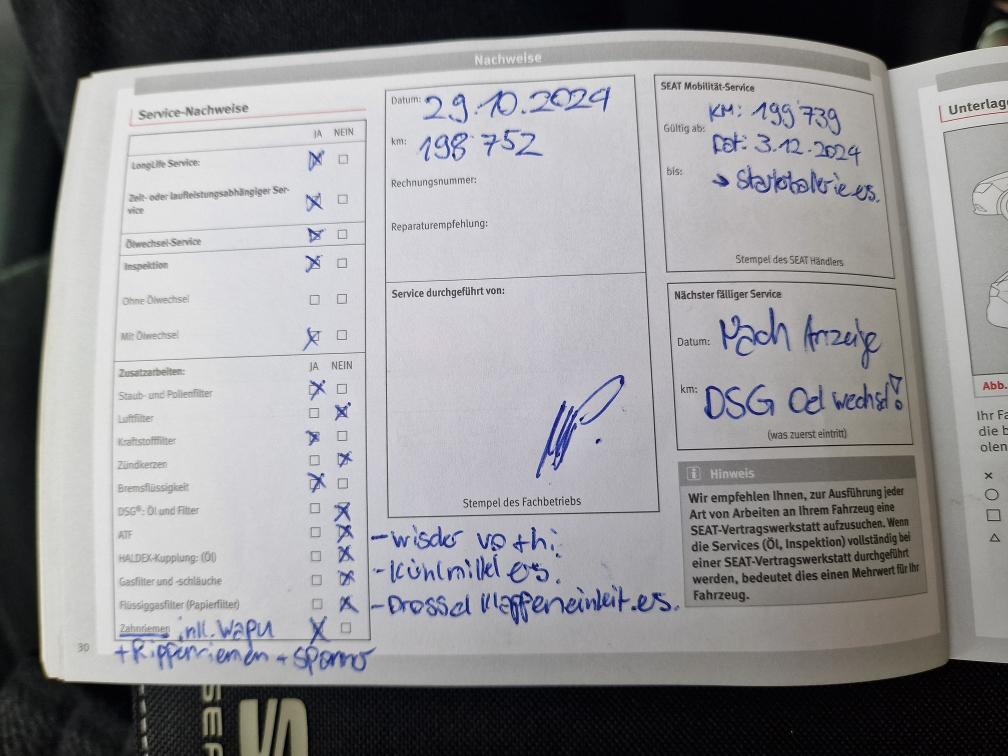 Nachweise
Service-Nachweise
JA NEIN
LongLife Service:
Zeit- oder laufleistungsabhängiger Ser-
vice
Ölwechsel-Service
Inspektion
Ohne Ölwechsel
Mit Ölwechsel
Zusatzarbeiten: JA NEIN
Staub- und Pollenfilter
Luftfilter
Kraftstofffilter
Zündkerzen
Bremsflüssigkeit
DSG®: Öl und Filter
ATF
HALDEX-Kupplung: (Öl)
Gasfilter und -schläuche
Flüssiggasfilter (Papierfilter)
Zahnriemen inkl. WaPu
+ Rippenriemen + Spanner
30
Datum: 29.10.2024
km: 198 752
Rechnungsnummer:
Reparaturempfehlung:
Service durchgeführt von:
Stempel des Fachbetriebs
- wischer vo + hi
- Kühlmittel es.
- Drosselklappeneinheit es.
SEAT Mobilität-Service
KM: 199'739
Gültig ab:
Dat: 3.12.2024
bis: → Starterbatterie es.
Stempel des SEAT Händlers
Nächster fälliger Service
Datum: Nach Anzeige
km: DSG Oel wechsel!
(was zuerst eintritt)
Hinweis
Wir empfehlen Ihnen, zur Ausführung jeder
Art von Arbeiten an Ihrem Fahrzeug eine
SEAT-Vertragswerkstatt aufzusuchen. Wenn
die Services (Öl, Inspektion) vollständig bei
einer SEAT-Vertragswerkstatt durchgeführt
werden, bedeutet dies einen Mehrwert für Ihr
Fahrzeug.
Unterlag
Abb.
Ihr Fa
die b
olen
SEA